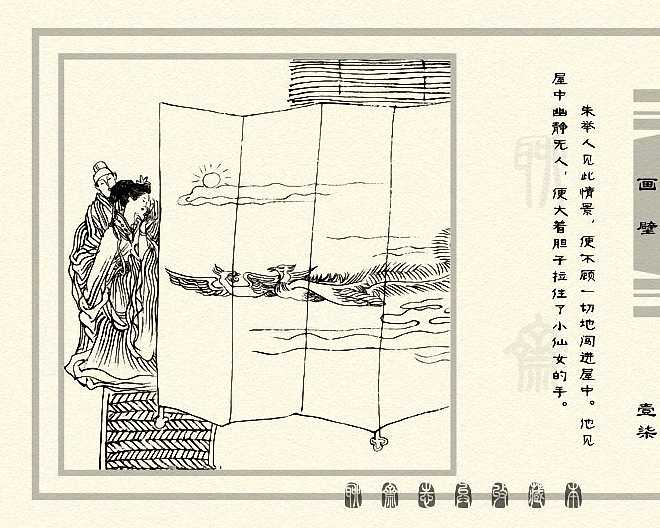 朱举人见此情景，便不顾一切地闯进屋中。他见
屋中幽静无人，便大着胆子拉住了小仙女的手。
画壁
壹柒
聊斋志异收藏本